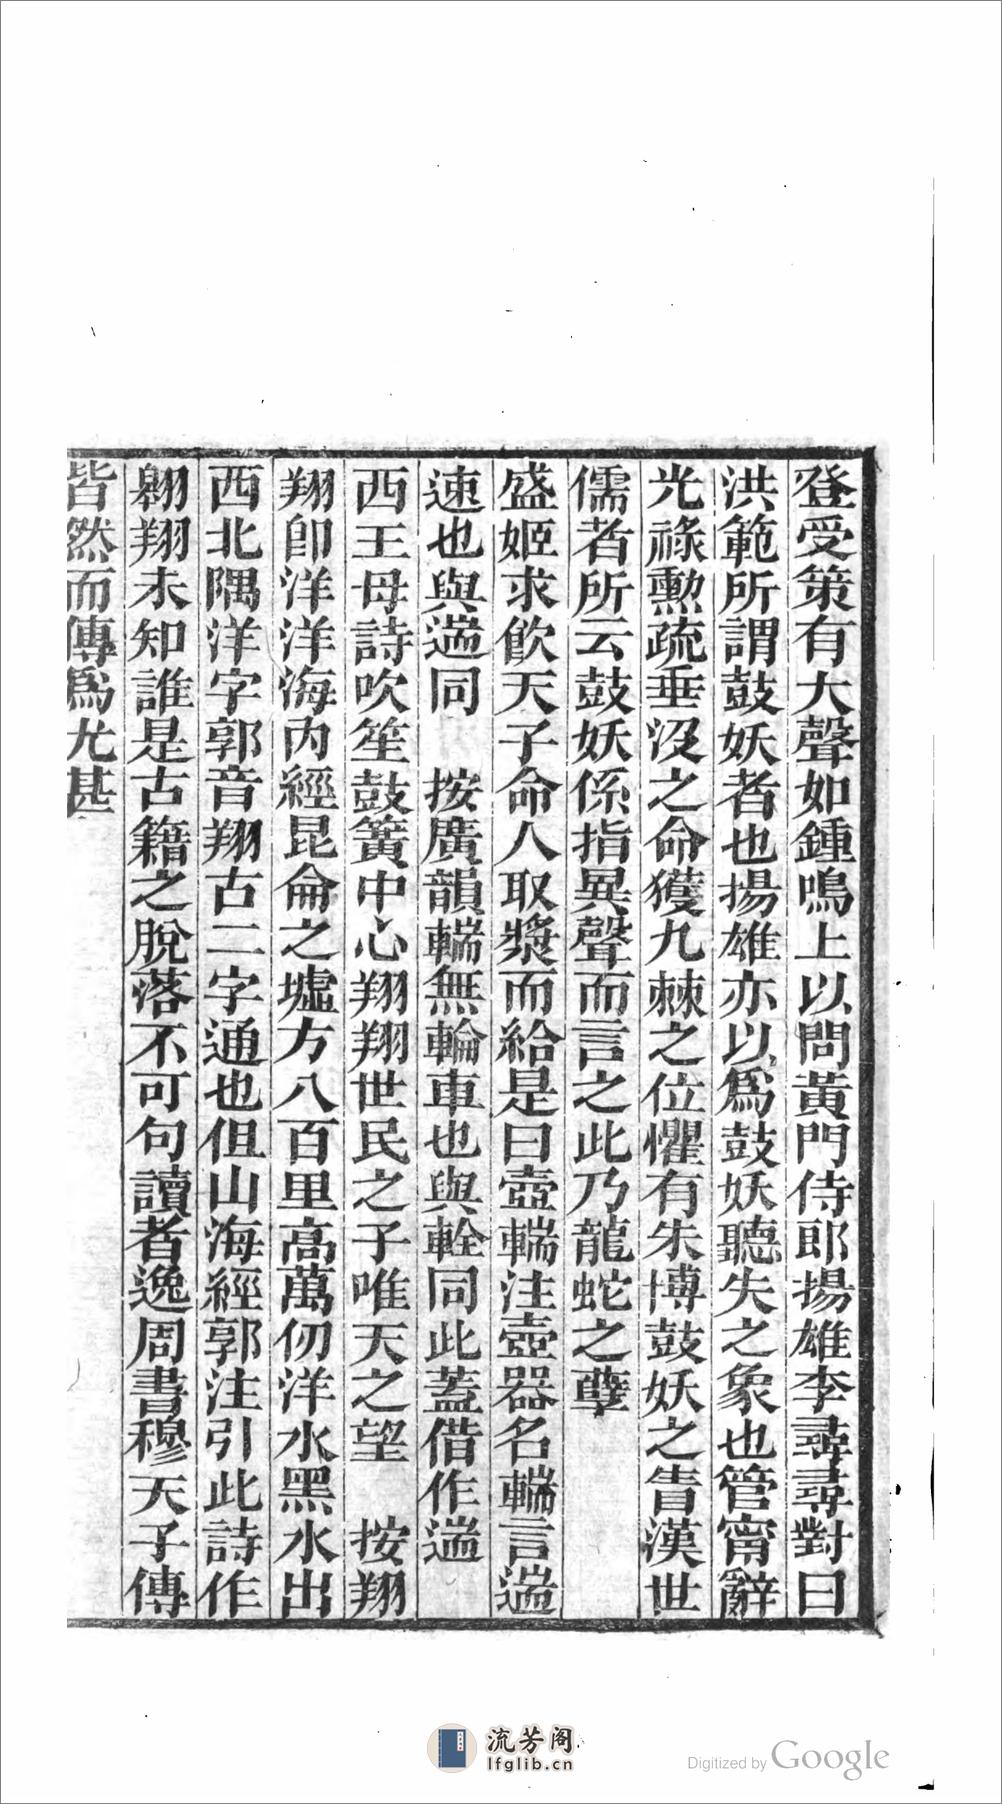 登受策有大聲如鍾鳴上以問黃門侍郎揚雄李尋尋對曰
洪範所謂鼓妖者也揚雄亦以爲鼓妖聽失之象也管甯辭
光祿勲疏垂沒之命獲九棘之位懼有朱博鼓妖之眚漢世
儒者所云鼓妖係指異聲而言之此乃龍蛇之孽
盛姬求飲天子命人取漿而給是曰壺輲注壺器名輲言遄
速也與遄同　按廣韻輲無輪車也與輇同此蓋借作遄
西王母詩吹笙鼓簧中心翔翔世民之子唯天之望　按翔
翔卽洋洋海內經昆侖之墟方八百里高萬仞洋水黑水出
西北隅洋字郭音翔古二字通也但山海經郭注引此詩作
翱翔未知誰是古籍之脫落不可句讀者逸周書穆天子傳
皆然而傳爲尤甚
流芳阁
lfglib.cn
Digitized by Google